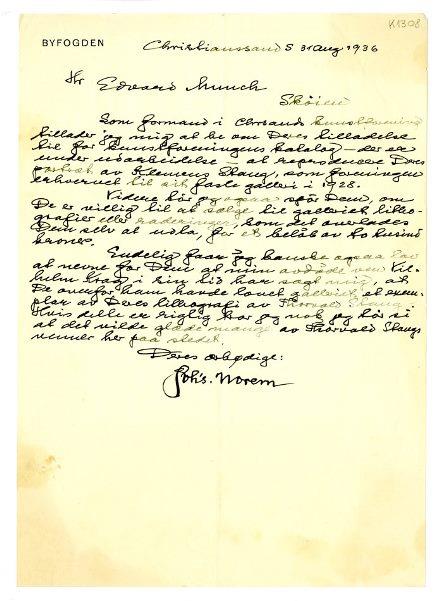 K1308
BYFOGDEN
Christianssand S 31 aug 1936
Hr Edvard Munch
Skøien
Som formand i Chrsands kunstforening
tillader jeg mig at be om Deres tilladelse
til for kunstforeningens katalog – der er
under utarbeidelse – at reproducere Deres
portræt av Klemens Stang, som foreningen
erhvervet til sit faste galleri i 1928.
Videre tør jeg ogsaa spør Dem, om
De er villig til at sælge til galleriet litho-
grafier eller raderinger, som det overlades
Dem selv at velge, for et beløb av to tusind
kroner.
Endelig faar jeg kanske ogsaa lov
at nevne for Dem at min avdøde ven Vil-
helm Krag i sin tid har sagt mig, at
De overfor ham hadde lovet galleriet et exem-
plar av Deres lithografi av Thorvald Stang.
Hvis dette er rigtig tror jeg nok jeg tør si
at det vilde glæde mange av Thorvald Stangs
venner her paa stedet.
Deres ærbødige:
Johs. Norem